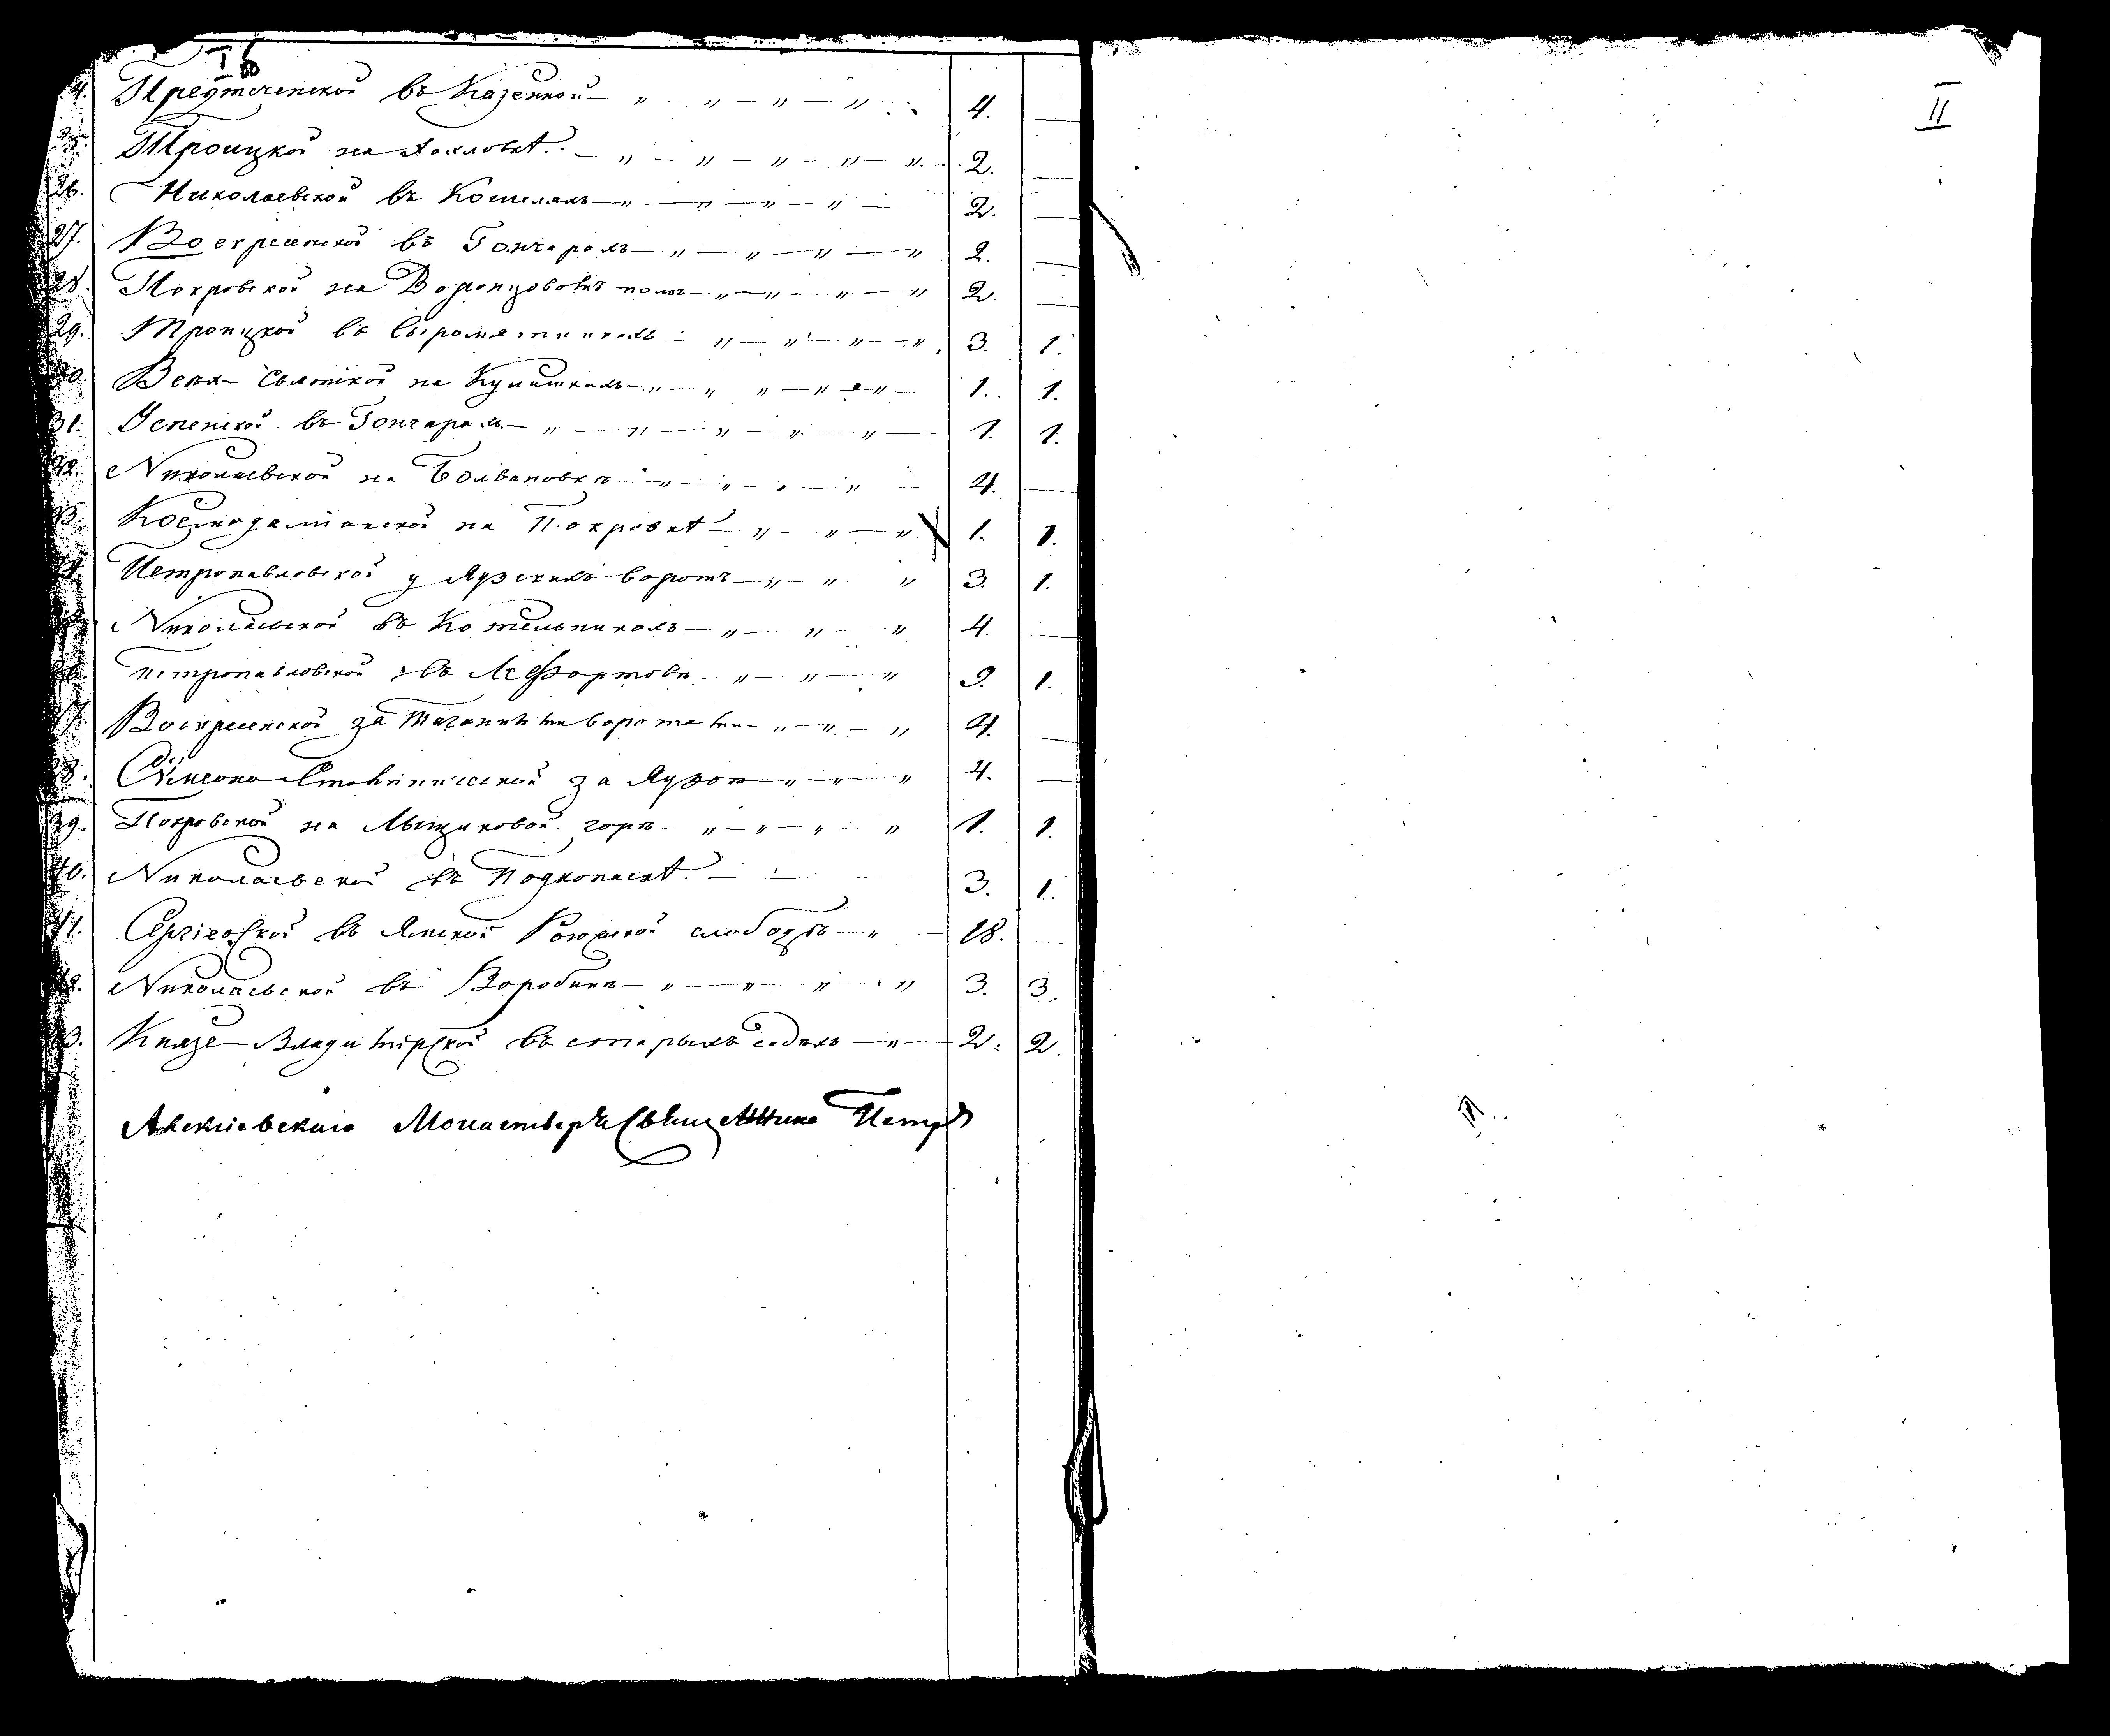 Iоб
II
24. Предтеченской въ Казенной — „ — „ — „ — „ — 4. —
25. Троицкой на Хохловкѣ — „ — „ — „ — „ — „ 2. —
26. Николаевской въ Кошеляхъ — „ — „ — „ — „ — 2. —
27. Воскресенской въ Гончарахъ — „ — „ — „ — „ 2. —
28. Покровской на Воронцовомъ поле — „ — „ — „ — „ 2. —
29. Троицкой въ Сыромятникахъ — „ — „ — „ — „ 3. 1.
30. Всехъ-Святской на Кулишкахъ — „ — „ „ — „ — „ — 1. 1.
31. Успенской въ Гончарахъ — „ — „ — „ — „ — „ — 1. 1.
32. Николаевской на Болвановке — „ — „ — „ — „ 4. —
33. Космодаміанской на Покровкѣ — „ — „ — „ 1. 1.
34. Петропавловской у Яузскихъ воротъ — „ — „ „ 3. 1.
35. Николаевской въ Котельникахъ — „ — „ — „ 4. —
36. Петропавловской въ Лефортове — „ — „ — „ 9. 1.
37. Воскресенской за Таганными воротами — „ — „ — „ 4. —
38. Сѵмеоно-Столпнической за Яузою — „ — „ — „ 4. —
39. Покровской на Лыщиковой горе — „ — „ — „ — „ 1. 1.
40. Николаевской въ Подкопаевѣ — — — 3. 1.
41. Сергіевской въ Ямской Рогожской слободѣ — „ — 18. —
42. Николаевской въ Воробине — „ — „ — „ — „ 3. 3.
43. Князе-Владимірской въ старыхъ садахъ — „ — 2. 2.
Алексіевскаго Монастыря Священника Петръ